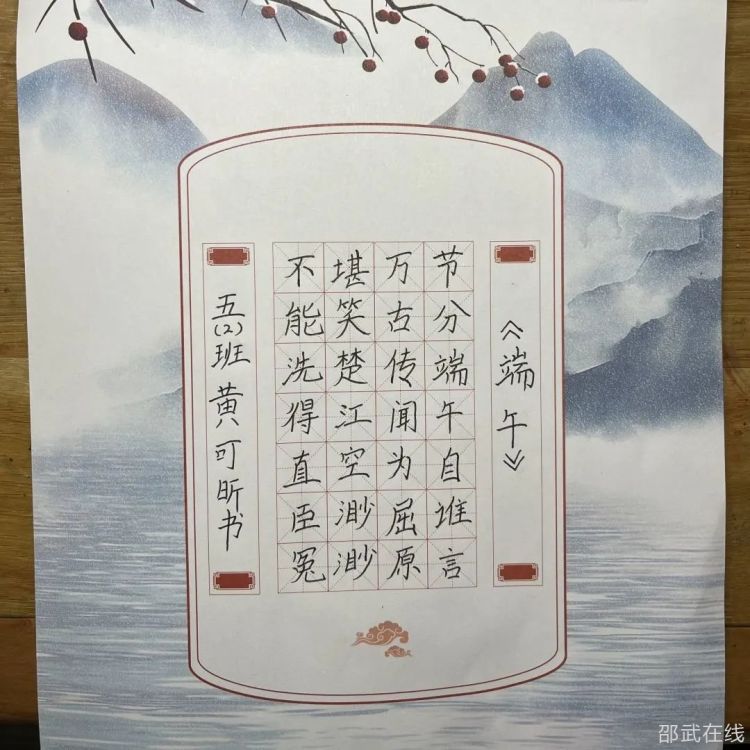 《端午》
节分端午自堆言
万古传闻为屈原
堪笑楚江空渺渺
不能洗得直臣冤
五(2)班 黄可昕书
邵武在线